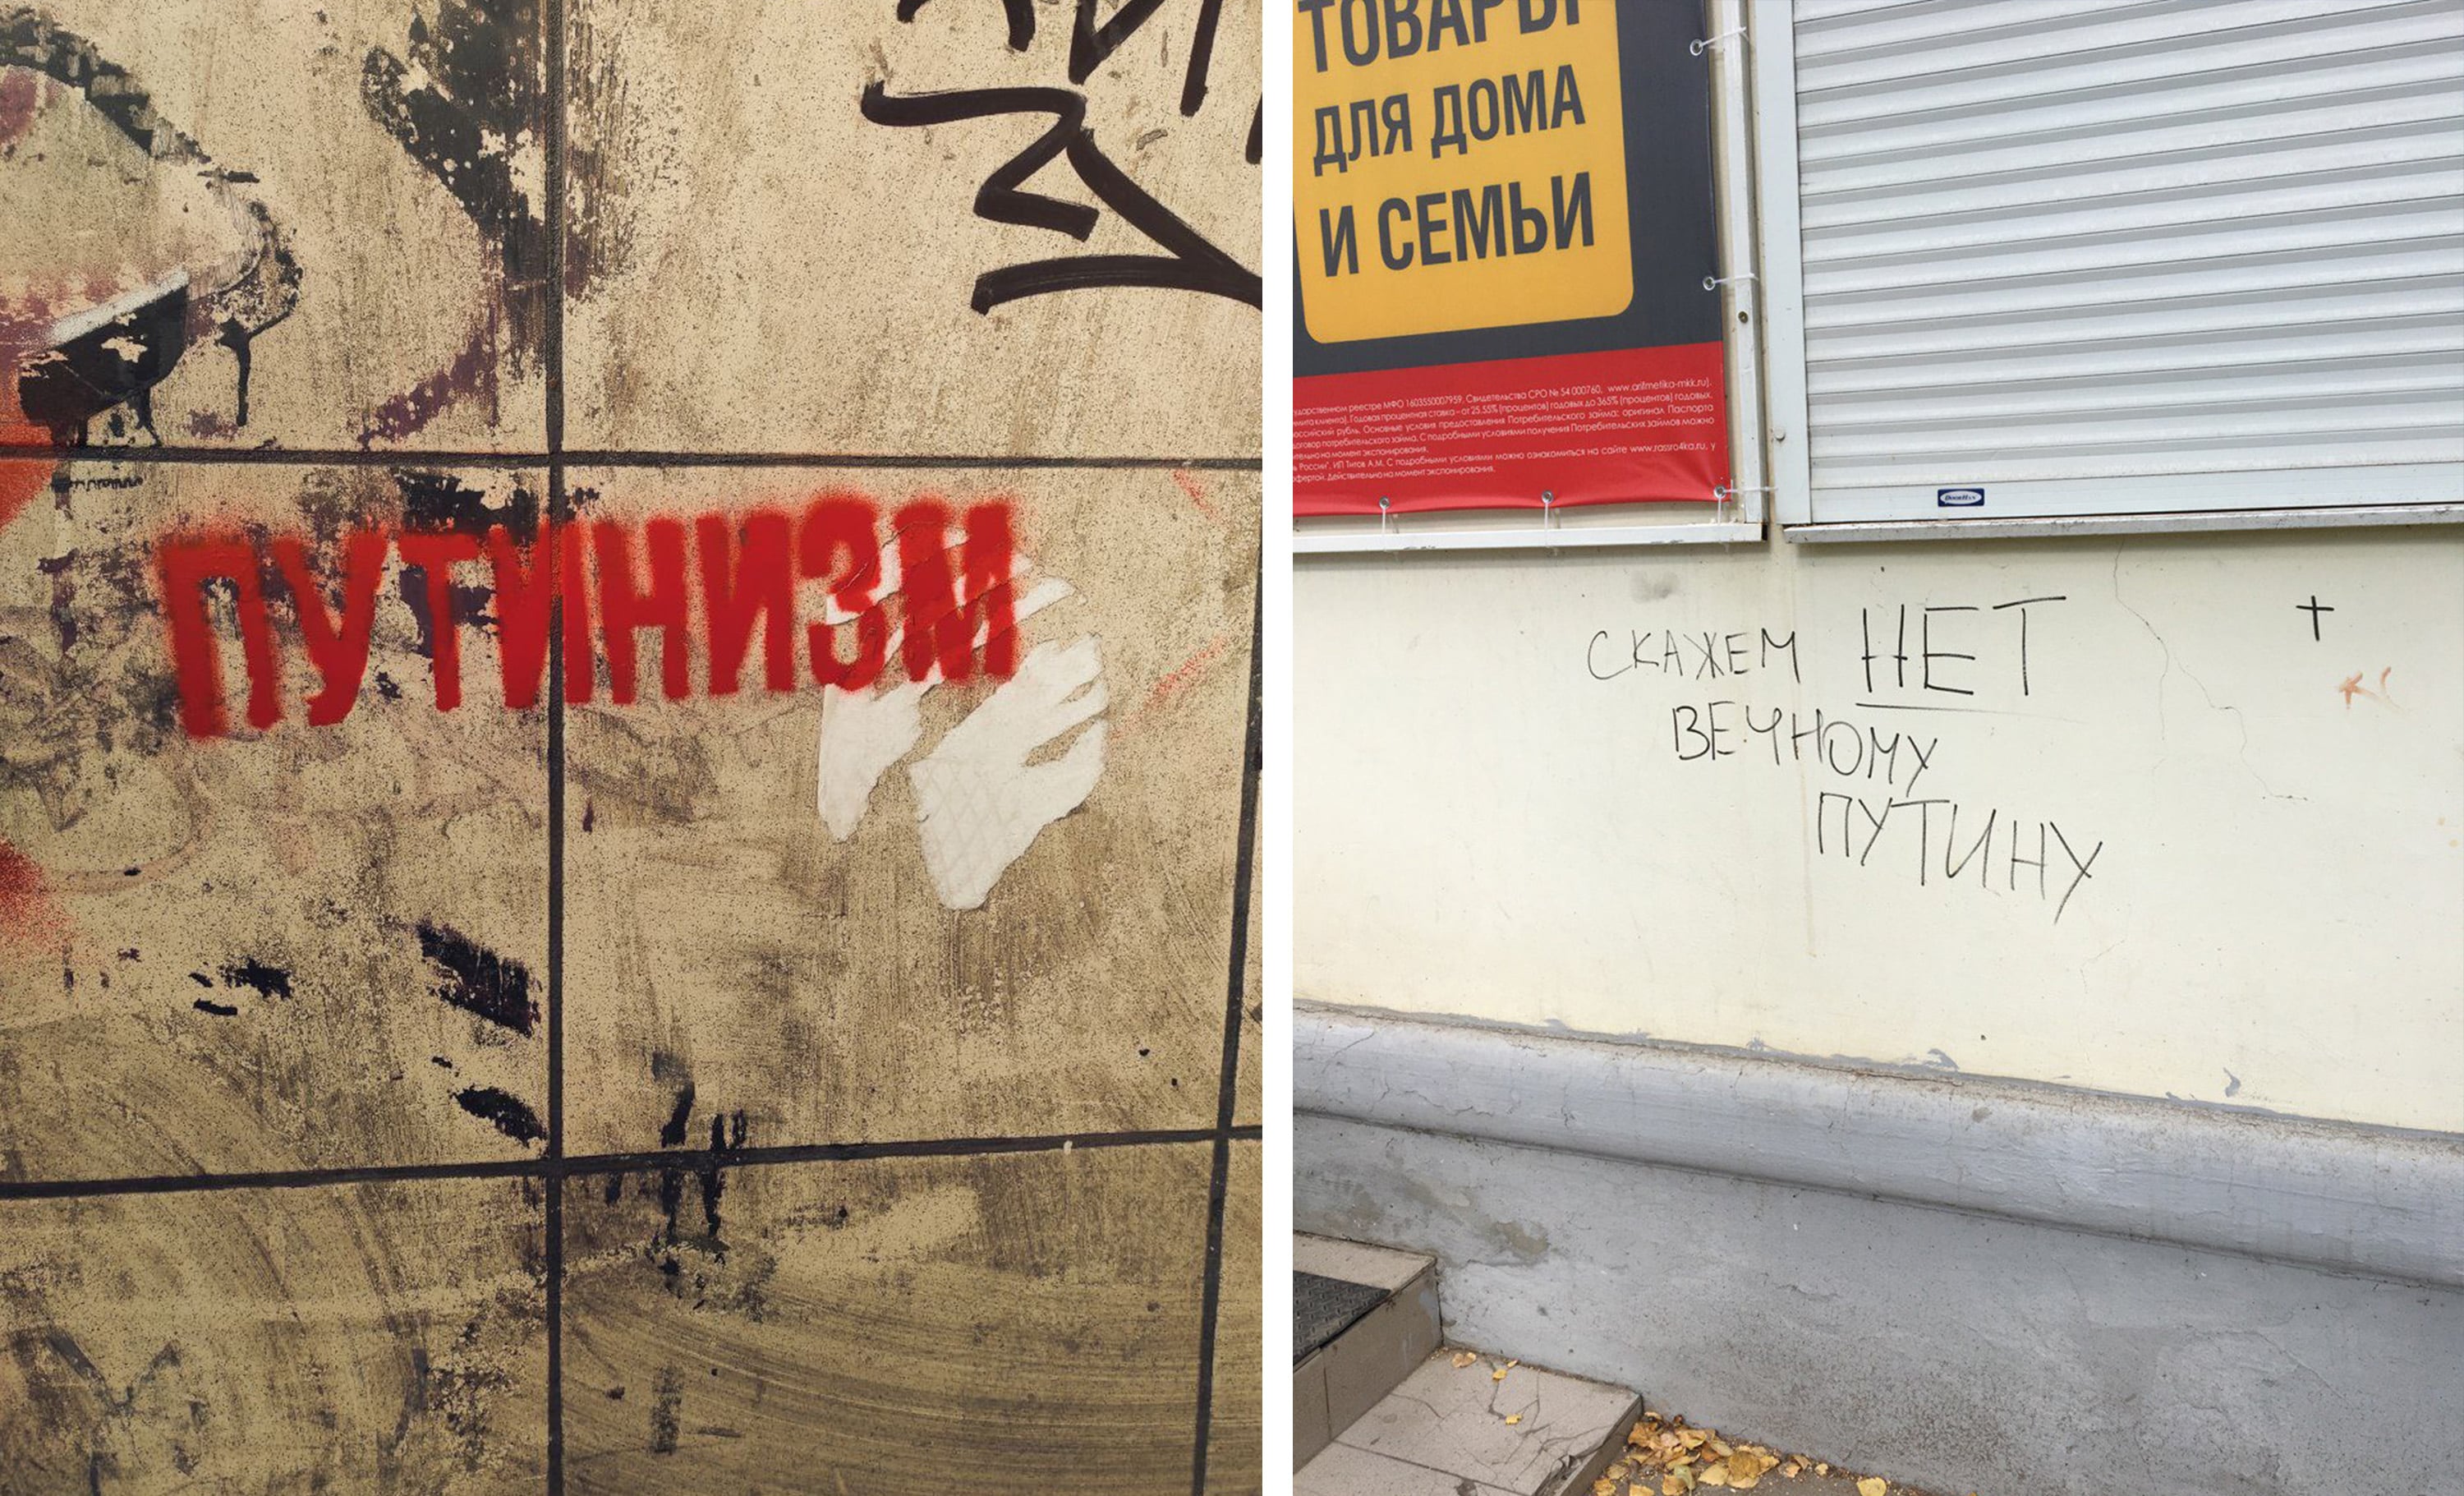 ПУТИНИЗМ
ТОВАРЫ
ДЛЯ ДОМА
И СЕМЬИ
ударственном реестре МФО 1603550007959, Свидетельства СРО № 54 000760, www.aritmetika-mkk.ru).
клиента). Годовая процентная ставка – от 25,55% (процентов) годовых до 365% (процентов) годовых.
оссийский рубль. Основные условия предоставления Потребительского займа: оригинал Паспорта
договор потребительского займа. С подробными условиями получения Потребительских займов можно
на момент экспонирования.
России". ИП Титов А.М. С подробными условиями можно ознакомиться на сайте www.rassro4ka.ru, у
офертой. Действительно на момент экспонирования.
DOORHAN
СКАЖЕМ НЕТ
ВЕЧНОМУ
ПУТИНУ